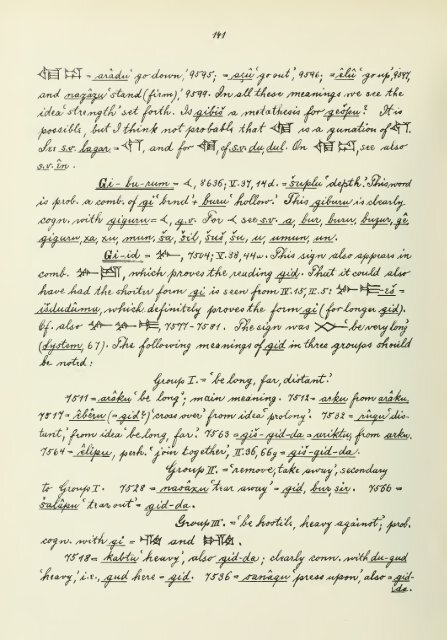 141
= arâdu 'go down,' 9545; = açû 'go out,' 9546; = êlû 'go up,' 9547,
and nazâzu 'stand (firm),' 9549. In all these meanings we see the
idea 'strength' set forth. Is gibiš a metathesis for gešpu? It is
possible, but I think not probable that is a gunation of
Is: s.v. lagar = , and for , cf. s.v. du, dul. On , see also
s.v. în.
Gi-bu-rum = , 8636; V. 37, 14d. = šuplu 'depth.' This word
is prob. a comb. of gi 'brnel' + buru 'hollow.' This giburu is clearly
cogn. with giguru = , q.v. For see s.v. a, bur, buru, buzur, gê
giguru, xa, xu, mun, ša, šil, šuš, šu, u, umun, un.
Gi-id = , 7504; V. 38, 44a. This sign also appears in
comb. , which proves the reading gid. That it could also
have had the shorter form gi is seen from IV. 15, II. 5: -eš =
išdudûmu, which definitely proves the form gi (for longer gid).
Cf. also , 7577-7581. The sign was 'be very long'
(System, 67). The following meanings of gid in three groups should
be noted:
Group I. = 'be long, far, distant.'
7511 = arâku 'be long'; main meaning. 7512 = arku from arâku.
7517 = êbêru (= gid?) 'cross over' from idea 'prolong'. 7532 = rûqu 'dis-
tant,' from idea 'be long, far.' 7563 = giš-gid-da = ariktu, from arku.
7564 = êlipu, perh. 'join together,' II. 36, 66g = giš-gid-da.
Group II. = 'remove, take away', secondary
to Group I. 7528 = nasâxu 'tear away' = gid, bur, sir. 7566 =
šalâpu 'tear out' = gid-da.
Group III. = 'be hostile, heavy against'; prob.
cogn. with gi = and .
7518 = kabtu 'heavy', also gid-da; clearly conn. with du-gud
'heavy', i.e., gud here = gid. 7536 = sanâqu 'press upon', also = gid-
da.